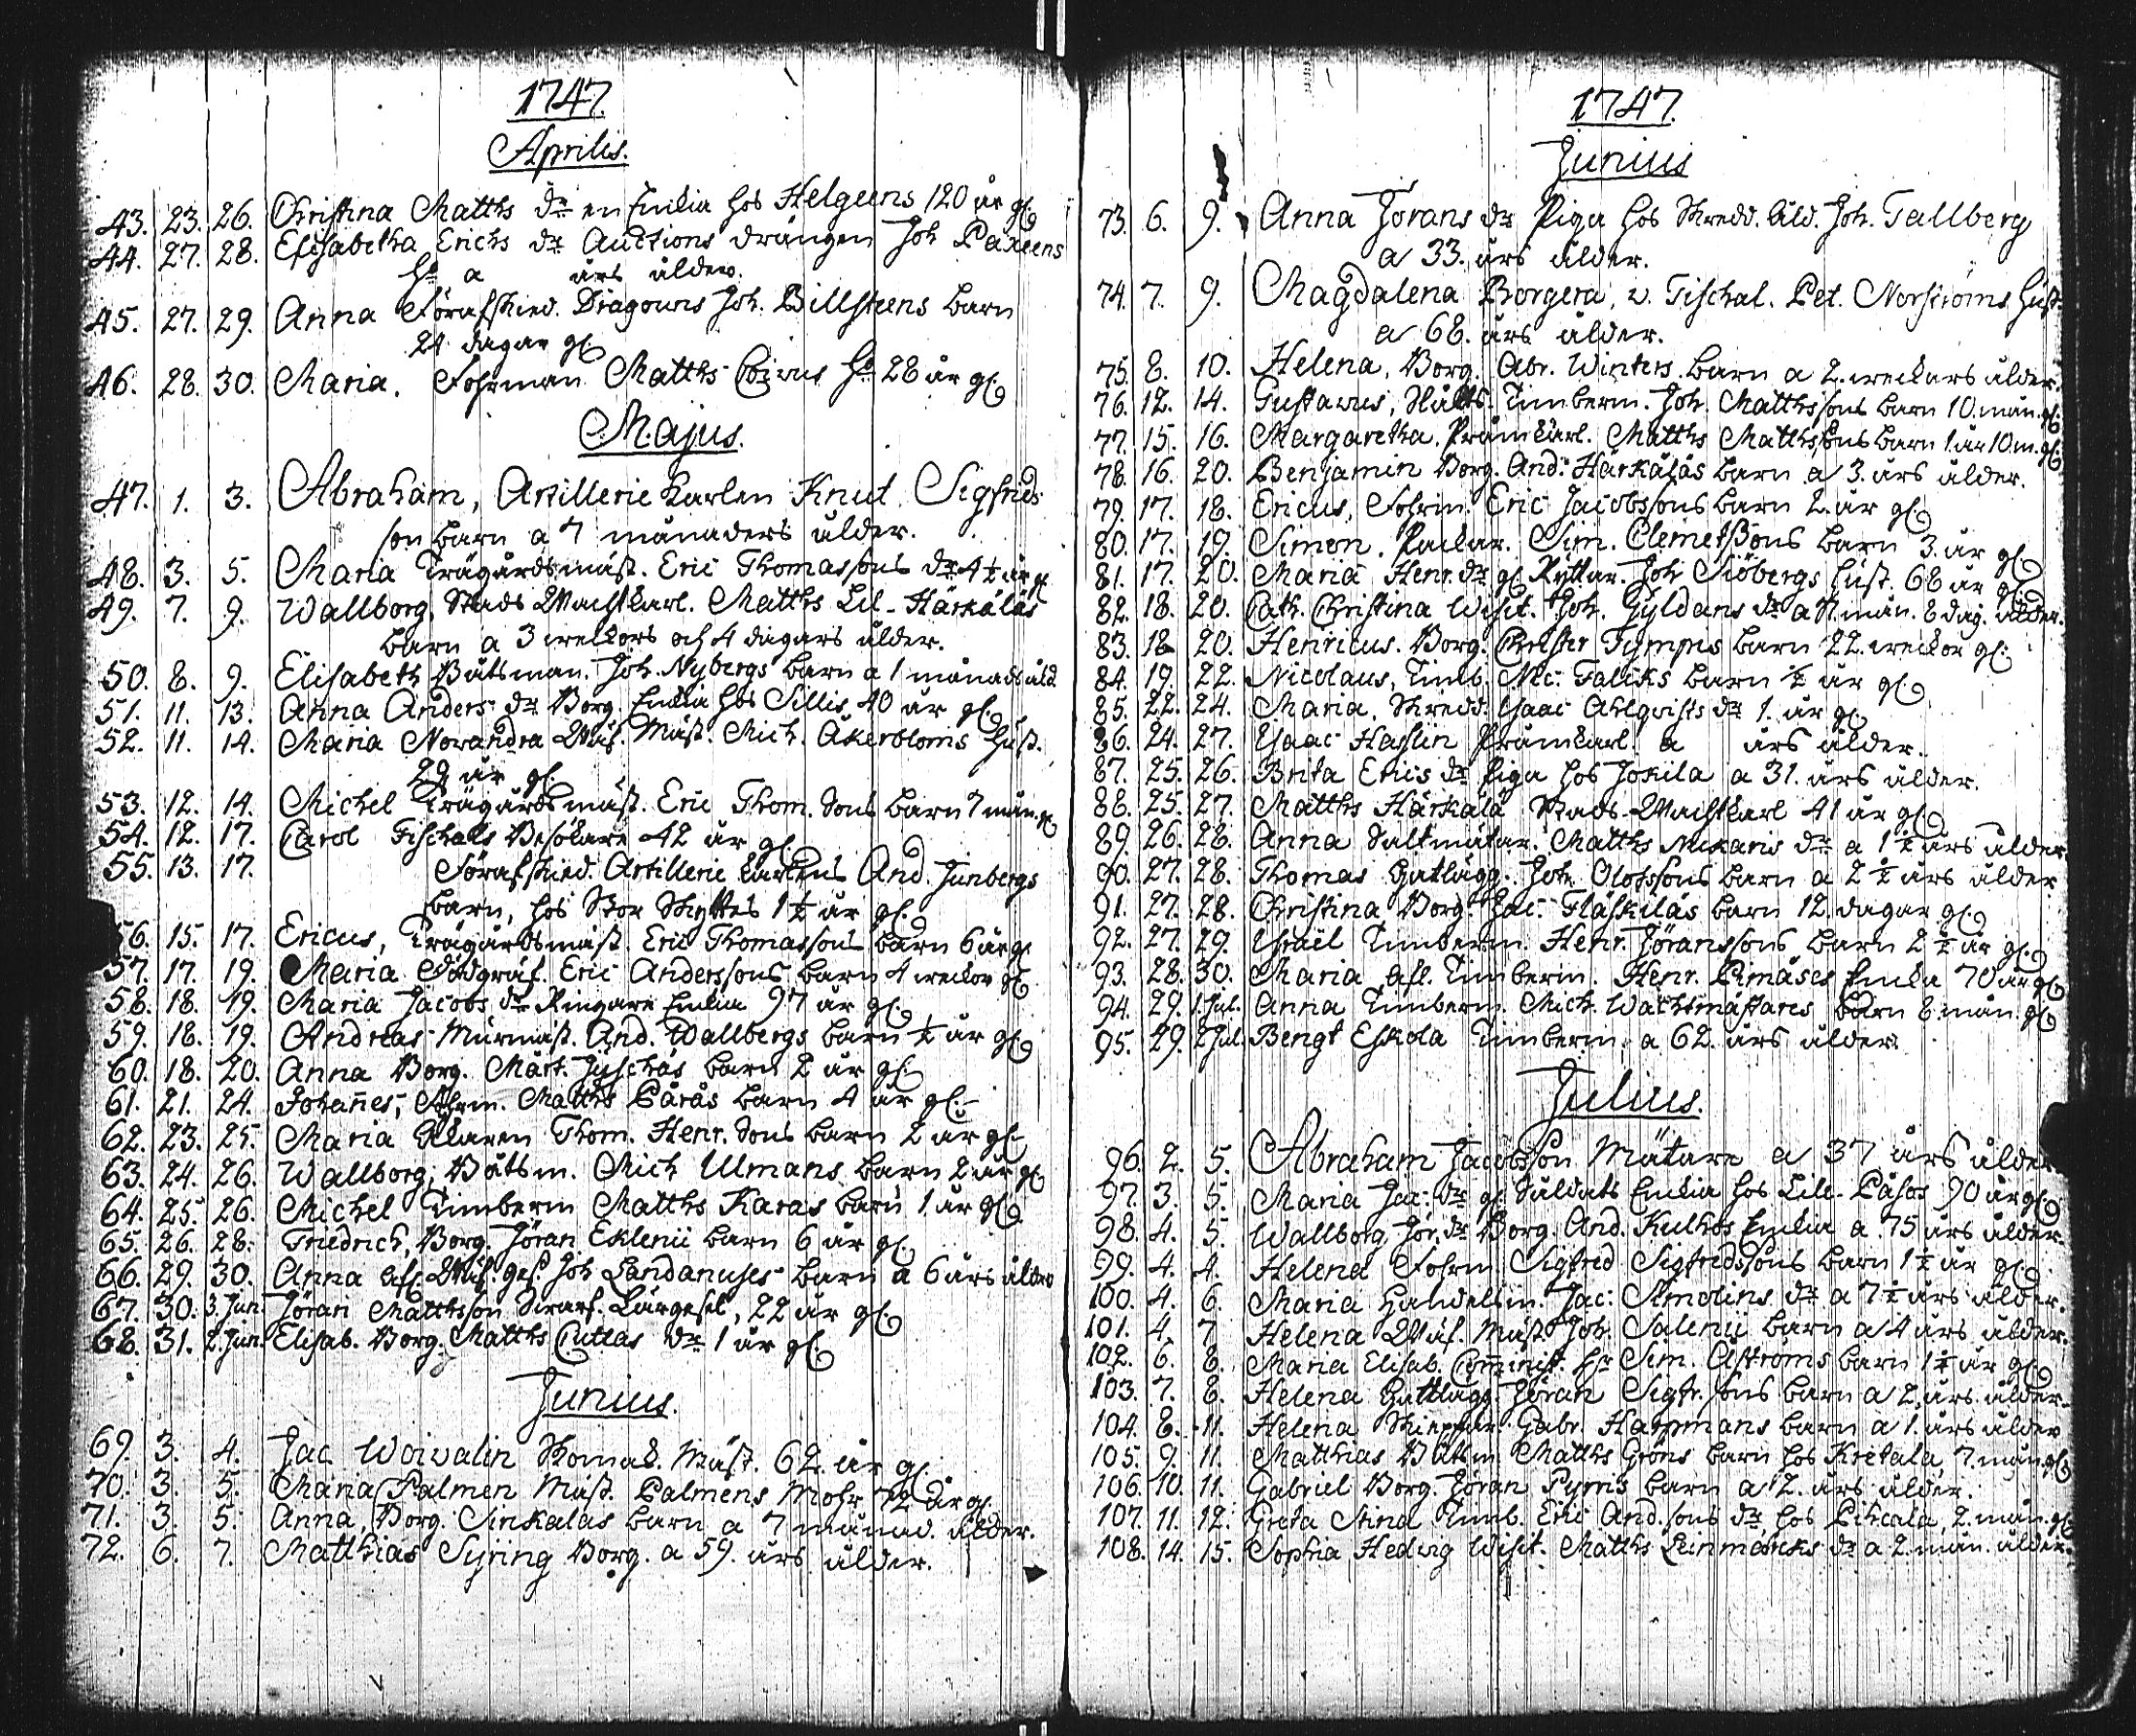 1747.
Aprilis.
43. 23. 26. Christina Matths dr en Enkia hos Helgeens 120 år gl.
44. 27. 28. Elisabetha Erichs dr Auctions drängen Joh Paxeens
H. a års ålder.
45. 27. 29. Anna Förafskied. Dragouns Joh. Billsteens barn
24 dagar gl.
46. 28. 30. Maria. Fohrman Matths H. 28 år gl.
Majus.
47. 1. 3. Abraham, Artillerie karlen Knut Sigfrids
son barn a 7 månaders ålder.
48. 3. 5. Maria Trägårdsmäst. Eric Thomassons dr 4 1/2 år gl.
49. 7. 9. Wallborg, Stads Wachtkarl. Matths Lil-Härkäläs
barn a 3 weckors och 4 dagars ålder.
50. 8. 9. Elisabeth Båtsman. Joh. Nybergs barn a 1 månads åld.
51. 11. 13. Anna Anders dr Borg. Enkia hos Sillis 40 år gl.
52. 11. 14. Maria Novandra Mäst. Mich. Åkerbloms Hust.
29 år gl.
53. 12. 14. Michel Trägårdsmäst. Eric Thom. Sons barn 7 mån. gl.
54. 12. 17. Carol Fischals Besökare 42 år gl.
55. 13. 17. Förafskied. Artillerie karlens And. Junbergs
barn, hos Stor Skyttes 1 1/2 år gl.
56. 15. 17. Ericus, Trägårdsmäst. Eric Thomassons barn 6 år gl.
57. 17. 19. Maria Dödgräf. Eric Anderssons barn 4 weckor gl.
58. 18. 19. Maria Jacobs dr Ringare Enkia 97 år gl.
59. 18. 19. Andreas Murmäst. And. Wallbergs barn 1/2 år gl.
60. 18. 20. Anna Borg. Mårt. barn 2 år gl.
61. 21. 24. Johannes, Fohrm. Matths Påräs barn 4 år gl.
62. 23. 25. Maria Thom. Henr. Sons barn 2 år gl.
63. 24. 26. Wallborg, Båtsm. Mich Ulmans barn 2 år gl.
64. 25. 26. Michel Timberm Matths Karas barn 1 år gl.
65. 26. 28. Friedrich, Borg. Jöran Eklenii barn 6 år gl.
66. 29. 30. Anna afl. ges. Joh Landanuses barn a 6 års ålder
67. 30. 3. Jun. Jöran Matthsson Swarf. Lärgesel, 22 år gl.
68. 31. 2. Jun. Elisab. Borg. Matths Cuttas dr 1 år gl.
Junius.
69. 3. 4. Jac Woivalin Skomak. Mäst. 62 år gl.
70. 3. 5. Maria Palmen Mäst. Palmens Mohr 72 år gl.
71. 3. 5. Anna, Borg. Sinkalas barn a 7 månad. ålder.
72. 6. 7. Matthias Syring Borg. a 59. års ålder.
1747.
Junius
73. 6. 9. Anna Jörans dr Piga hos Skredd. åld. Joh. Tallberg
a 33. års ålder.
74. 7. 9. Magdalena Borgera, v. Fischal. Pet. Norströms Hust.
a 68. års ålder.
75. 8. 10. Helena, Borg. Abr. Winters barn a 2. weckars ålder.
76. 12. 14. Gustavus, Timberm. Joh. Matthssons barn 10. mån. gl.
77. 15. 16. Margaretha. Pråmkarl. Matths Matthssons barn 1. år 10 m. gl.
78. 16. 20. Benjamin Borg. And. Härkäläs barn a 3. års ålder.
79. 17. 18. Ericus, Fohrm. Eric Jacobssons barn 2. år gl.
80. 17. 19. Simon. Packar. Sim. Clemetssons barn 3. år gl.
81. 17. 20. Maria Henr. dr gl. Ryttar. Joh Siöbergs Hust. 68 år gl.
82. 18. 20. Cath. Christina Wisit. Joh. Gyldans dr a mån. 8 dag. ålder.
83. 18 20. Henricus. Borg. Christer Tympis barn 22. weckor gl.
84. 19. 22. Nicolaus, Timb. Nic. Falcks barn 1/2 år gl.
85. 22. 24. Maria, Skredd. Isaac Ahlqvists dr 1. år gl.
86. 24. 27. Isaac Hasslin Pråmkarl. a års ålder.
87. 25. 26. Brita Erics dr Piga hos Jokila a 31. års ålder.
88. 25. 27. Matths Härkälä Stads-Wachtkarl 41 år gl.
89. 26. 28. Anna Saltmätar. Matths dr a 1 1/2 års ålder
90. 27. 28. Thomas Gatlägg. Joh. Olofssons barn a 2 1/2 års ålder
91. 27. 28. Christina Borg. Jac. Flaskiläs barn 12 dagar gl.
92. 27. 29. Israël Timberm. Henr. Jöranssons barn 2 1/2 år gl.
93. 28. 30. Maria afl. Timberm. Henr. Enkia 70 år gl.
94. 29. 1. Jul. Anna Timberm. Mich. Wachtmästares barn 8. mån. gl.
95. 29. 2 Jul. Bengt Eskola Timberm. a 62. års ålder.
Julius.
96. 2. 5. Abraham Jacobsson Mätare a 37 års ålder
97. 3. 5. Maria Jac: dr gl. Saldats Enkia hos Lill-Påsos 90 år gl.
98. 4. 5. Wallborg Jör. dr Borg. And. Kulhos Enkia a 75 års ålder.
99. 4. 4. Helena Fohrm Sigfred Sigfredssons barn 1 1/2 år gl.
100. 4. 6. Maria Handelsm. Jac: Simolins dr a 7 1/2 års ålder.
101. 4. 7 Helena Mäst. Joh. Salenii barn a 4 års ålder.
102. 6. 8. Maria Elisab. Comminist. Hr Sim. Alstroms barn 1 1/2 år gl.
103. 7. 8. Helena Gattlägg. Jöran Sigfr. sons barn a 2. års ålder.
104. 8. 11. Helena Skieppar. Gabr. Harpmans barn a 1. års ålder
105. 9. 11. Matthias Båtsm Matths Gröns barn hos Kretala 7. mån gl.
106. 10. 11. Gabriel Borg. Jöran Pyrris barn a 2. års ålder.
107. 11. 12. Greta Stina Timb. Eric And. sons dr hos Pitcala, 2. mån. gl.
108. 14. 15. Sophia Hedwig Wisit. Matths Leinmarcks dr a 2. mån. ålder.